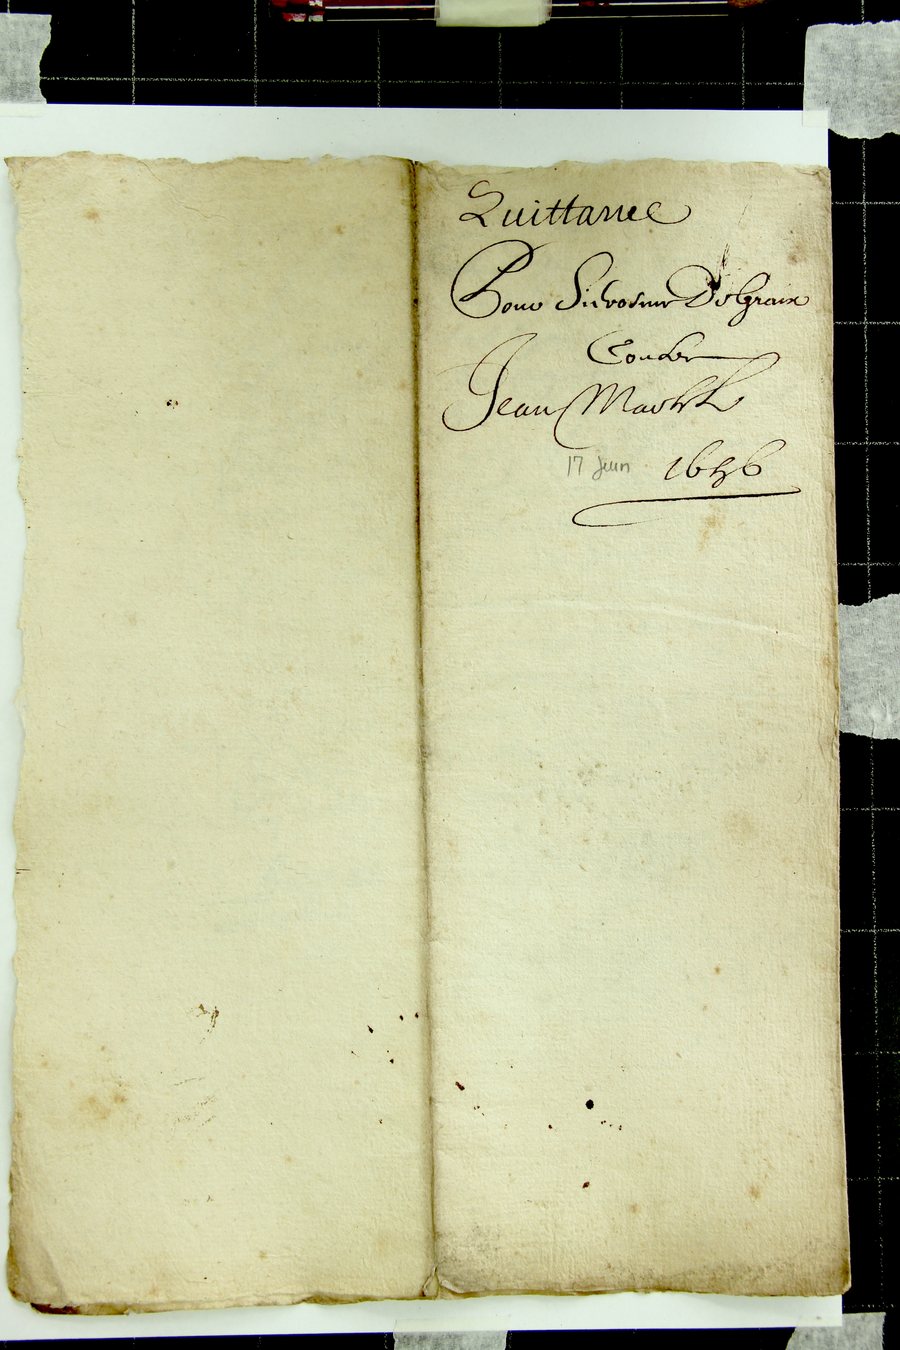 Quittance
Pour Silvestre Delgraix
Contre
Jean Martel
17 Juin 1656